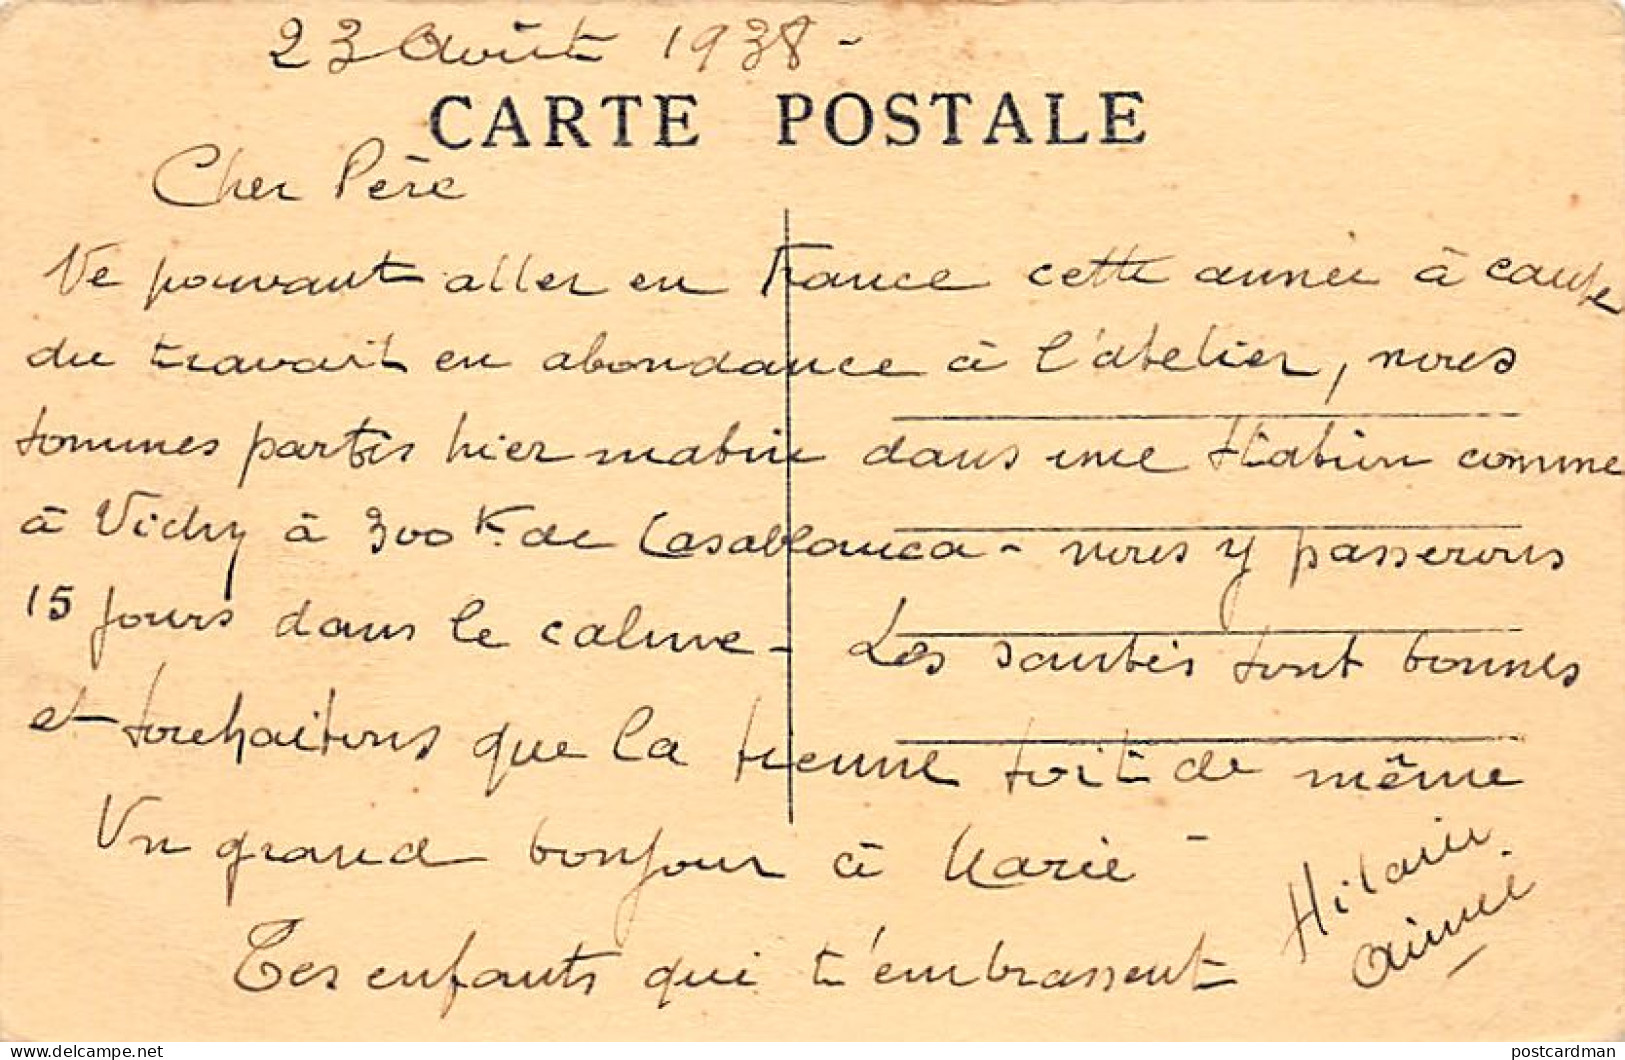 23 Août 1938 -
CARTE POSTALE
Cher Père
Ne pouvant aller en France cette année à cause
du travail en abondance à l'atelier, nous
sommes partis hier matin dans une station comme
à Vichy à 300 K. de Casablanca - nous y passerons
15 jours dans le calme - Les santés sont bonnes
et souhaitons que la tienne soit de même
Un grand bonjour à Marie -
Tes enfants qui t'embrassent
Hilaire
Aimée
postcardman